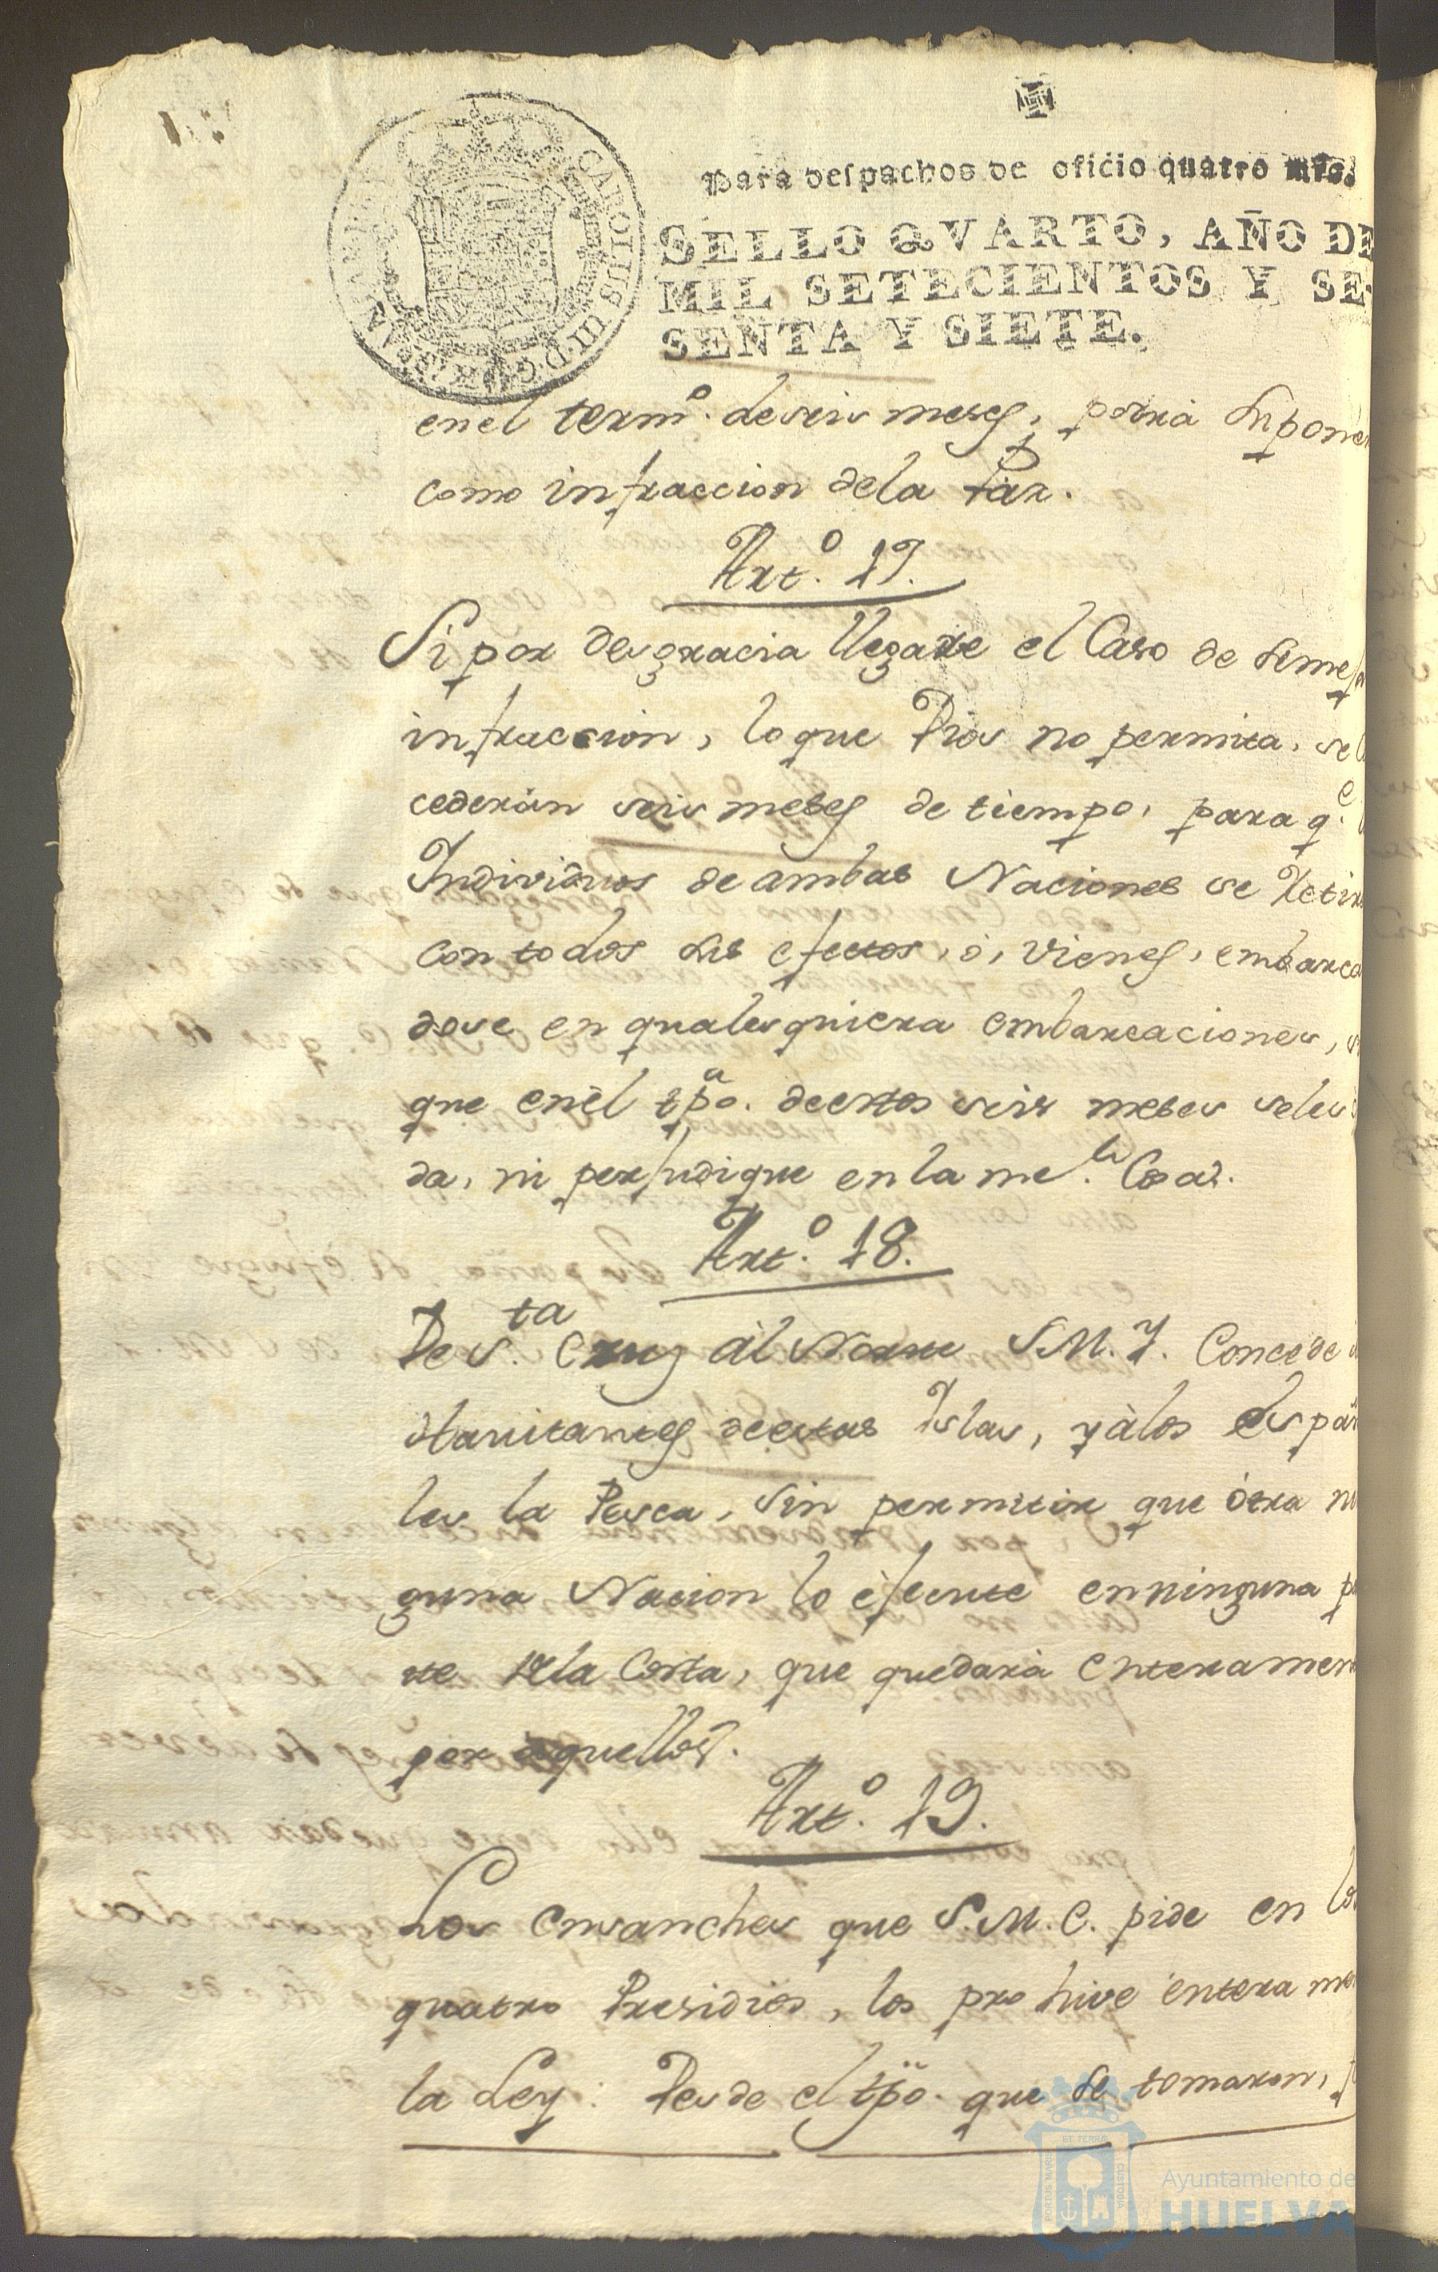 Para despachos de oficio quatro mrs.
SELLO QVARTO, AÑO DE
MIL SETECIENTOS Y SE-
SENTA Y SIETE.
CAROLUS III D. G.
en el termº. de seis meses, podrá suponer
como infraccion de la Paz.
Artº. 17.
Si por desgracia llegare el Caso de seme
infraccion, lo que Dios no permita, se
cederán seis meses de tiempo, para q.e
Individuos de ambas Naciones se Retir
con todos sus efectos, ò, vienes, embarca
dose en qualesquiera embarcaciones,
que en èl tpo. de estos seis meses seles
da, ni perjudique en la me.
Artº. 18.
De S.ta Cruz àl Norte S.M.Y. Concede
Havitantes de estas Yslas, y àlos Españ
les la Pesca, sin permitir que òtra ni
guna Nacion lo èjecute en ninguna p
te de la Costa, que quedarà enteramen
por aquellos.
Artº. 19.
Los ensanches que S.M.C. pide en los
quatro Presidios, los prohive entera me
la Ley: Desde el tpo. que se tomaron,
Ayuntamiento de
HUELVA